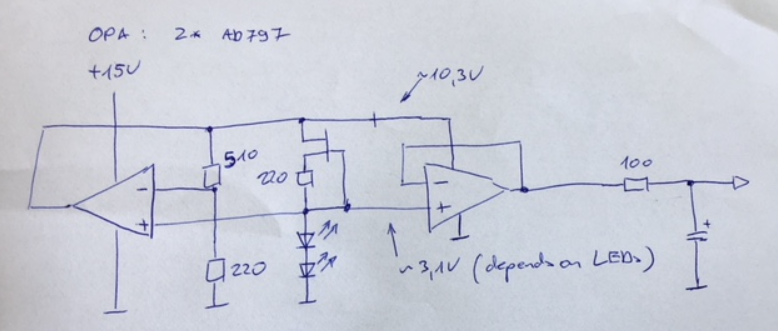 OPA: 2x AD797
+15V
~10,3V
510
100
220
-
-
+
+
+
220
~3,1V (depends on LEDs)